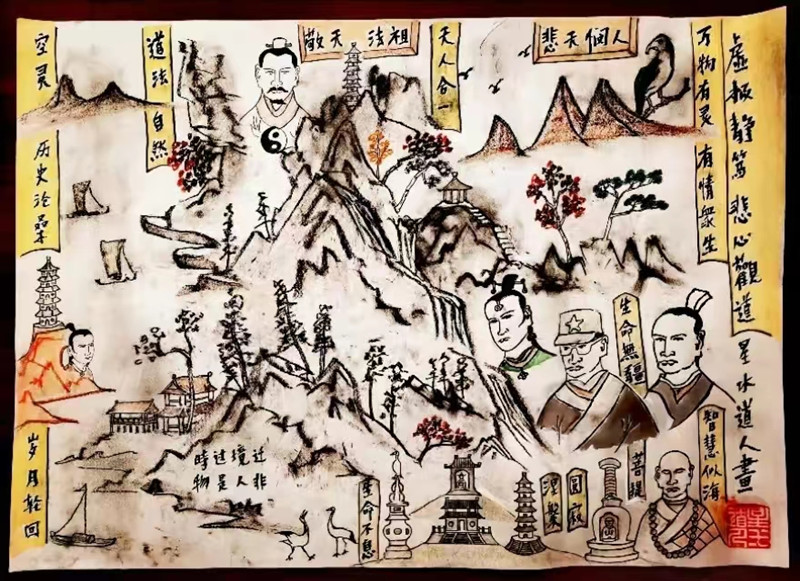 空灵
历史沧桑
岁月轮回
道法自然
敬天法祖
天人合一
悲天悯人
万物有灵
有情衆生
虚极静笃悲心觀道
星水道人畫
生命無疆
智慧似海
菩提
圓寂
涅槃
生命不息
時过境迁
物是人非